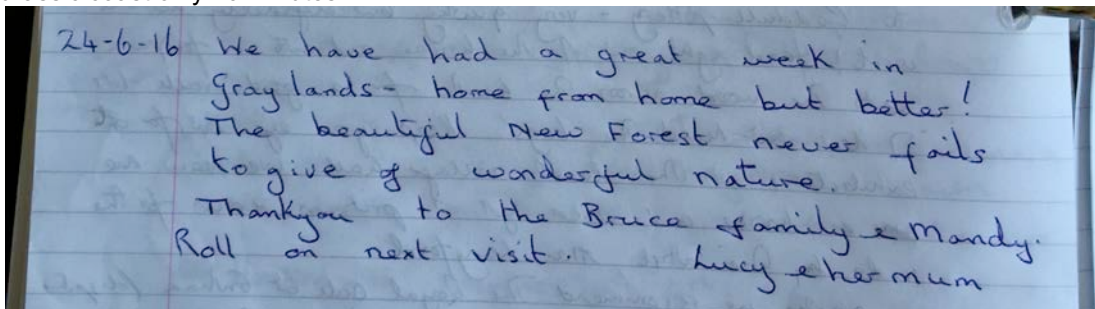 24-6-16 We have had a great week in
Graylands - home from home but better!
The beautiful New Forest never fails
to give of wonderful nature.
Thankyou to the Bruce family & Mandy.
Roll on next visit. Lucy & her mum